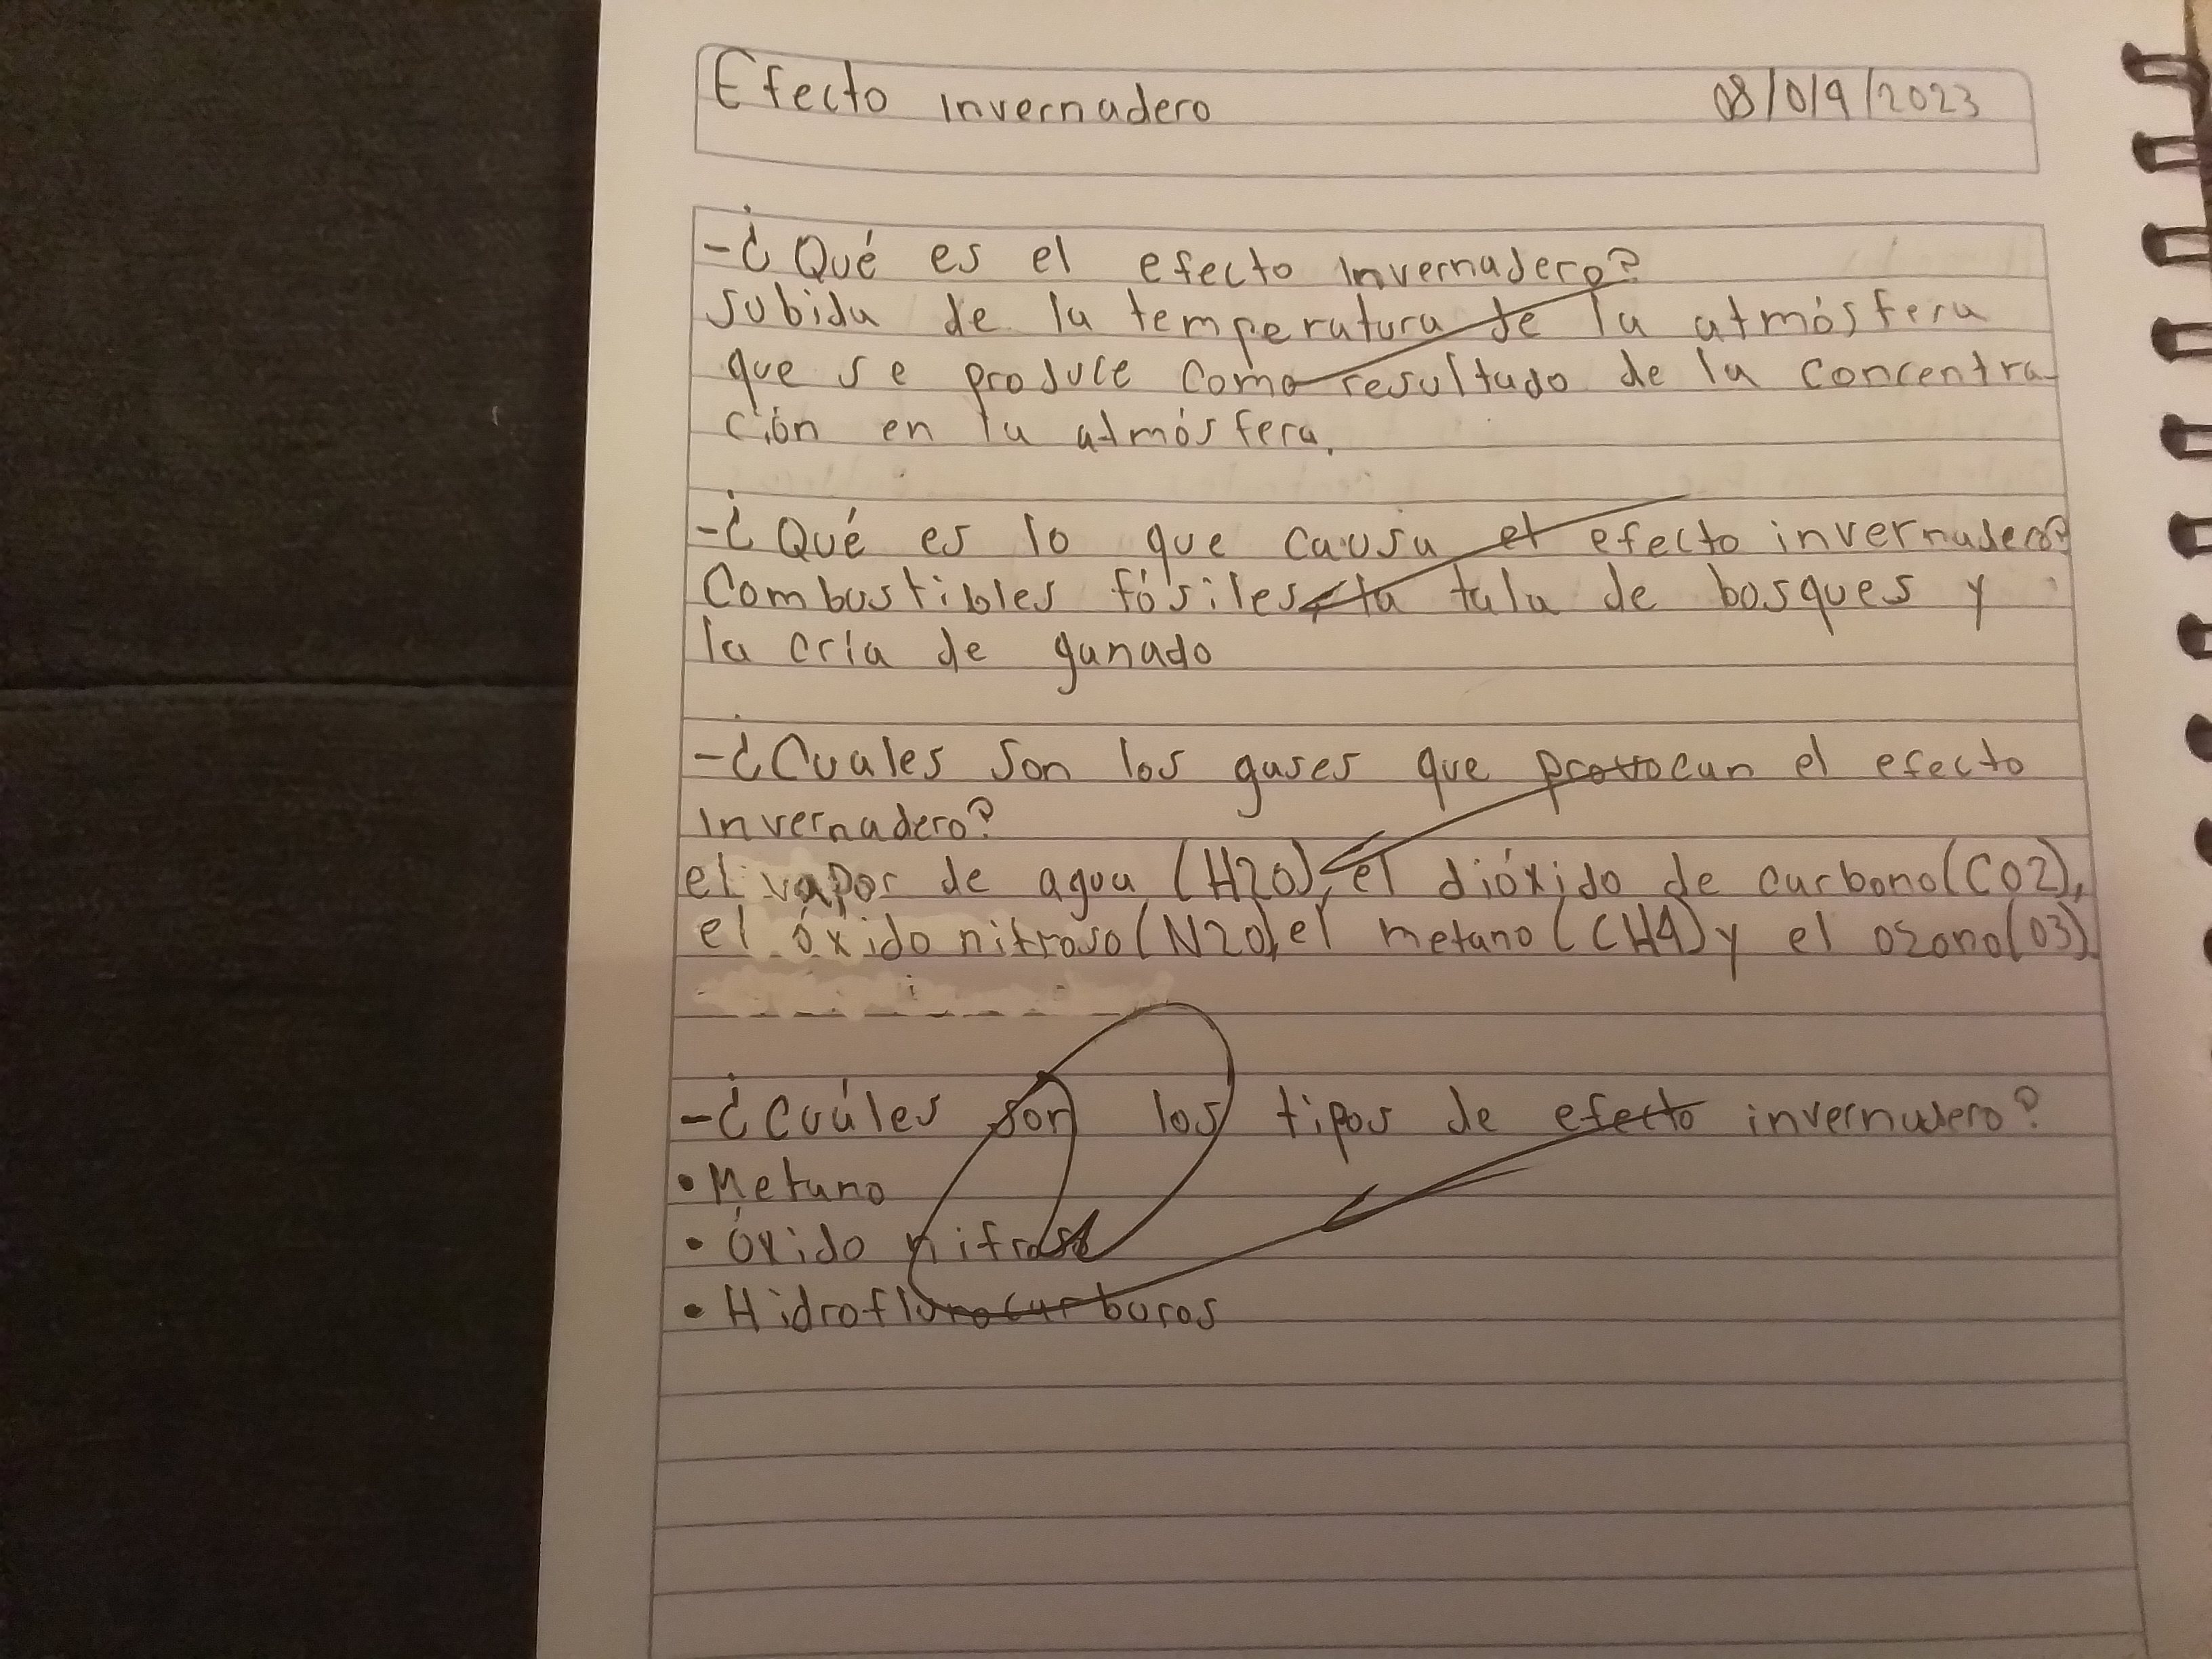 Efecto invernadero 08/0/9/2023
-¿Qué es el efecto invernadero?
subida de la temperatura de la atmósfera
que se produce como resultado de la concentra-
ción en la atmósfera.
-¿Qué es lo que causa el efecto invernadero?
Combustibles fósiles, la tala de bosques y
la cría de ganado
-¿Cuales son los gases que provocan el efecto
invernadero?
el vapor de agua (H2O), el dióxido de carbono(CO2),
el óxido nitroso(N2O), el metano(CH4) y el ozono(O3).
-¿Cuáles son los tipos de efecto invernadero?
• Metano
• Óxido nitroso
• Hidroflurocarburos